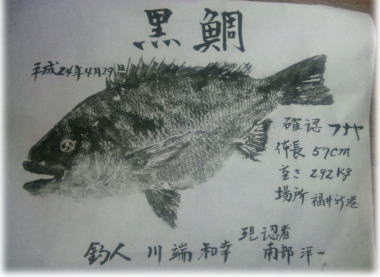 黒鯛
平成24年4月29日
確認 フナヤ
体長 57cm
重さ 2.92Kg
場所 福井新港
現認者
釣人 川端和幸 南部洋一